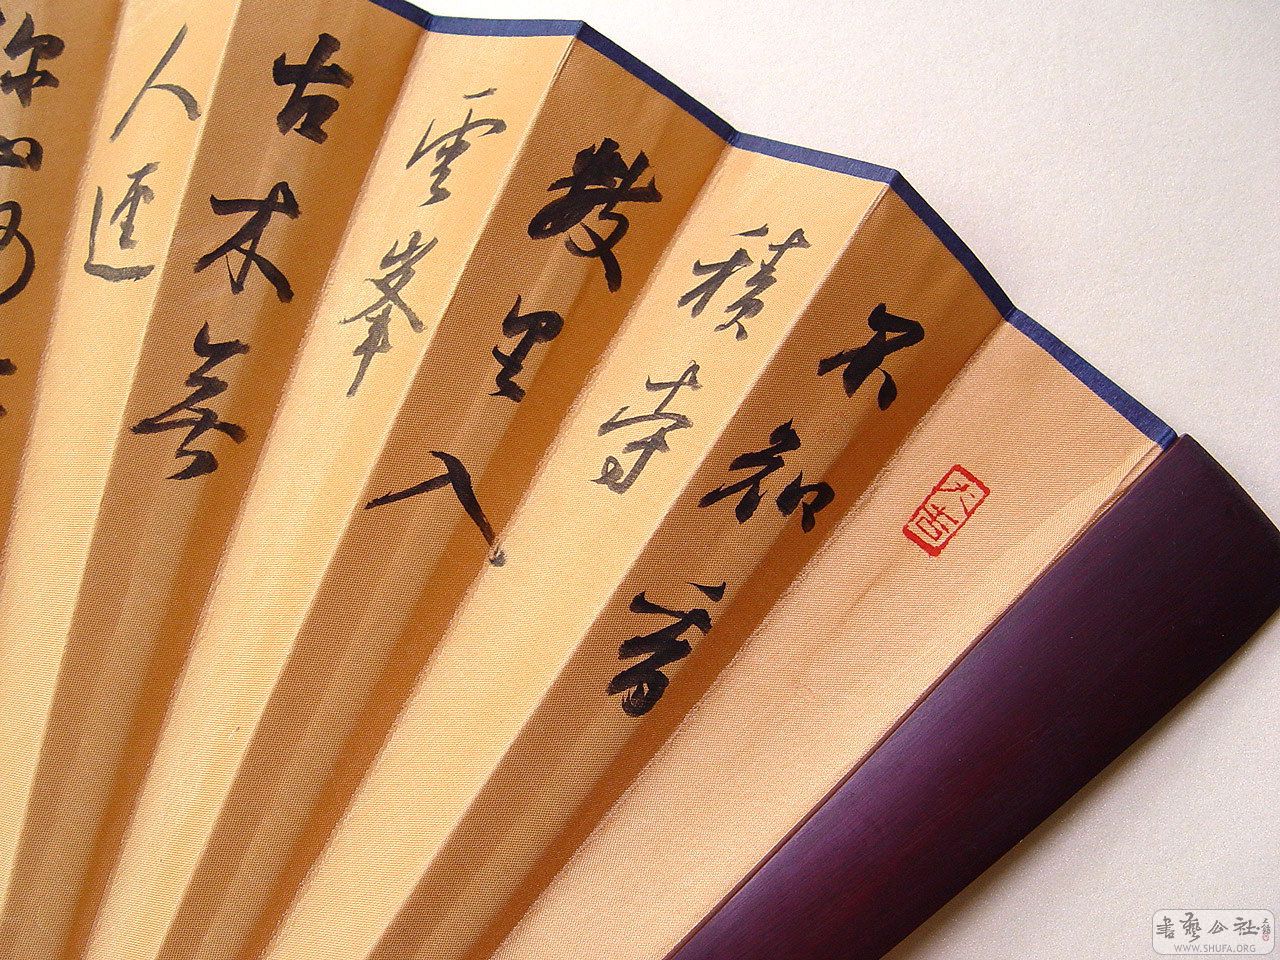 不知香
積寺
數里入
雲峯
古木無
人逕
深山何
書藝公社
WWW.SHUFA.ORG